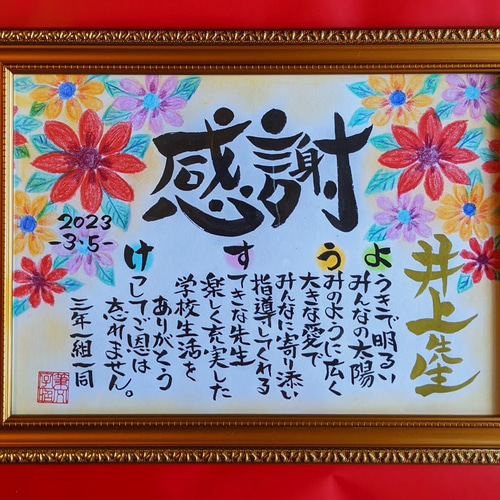 感謝
井上先生
ようきで明るい
みんなの太陽
うみのように広く
大きな愛で
みんなに寄り添い
指導してくれる
すてきな先生
楽しく充実した
学校生活を
ありがとう
けっしてご恩は
忘れません。
三年一組一同
2023
-3・5-